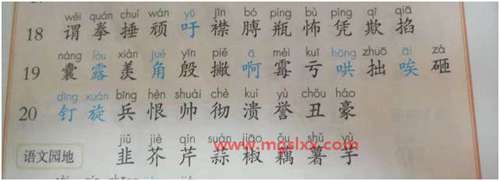 wèi quán chuí wán yù jīn bó píng bù píng qī qiā
18 谓 拳 捶 顽 吁 襟 膊 瓶 怖 凭 欺 掐
náng lòu xiàn jué yīn piē ā méi kuī hōng zhuō āi zá
19 囊 露 羡 角 殷 撇 啊 霉 亏 哄 拙 唉 砸
dīng xuán bīng hèn shuài chè kuì yù chǒu háo
20 钉 旋 兵 恨 帅 彻 溃 誉 丑 豪
www.mgslxx.com
jiǔ jiè qín suàn jiāo ǒu shǔ yù
语文园地 韭 芥 芹 蒜 椒 藕 薯 芋